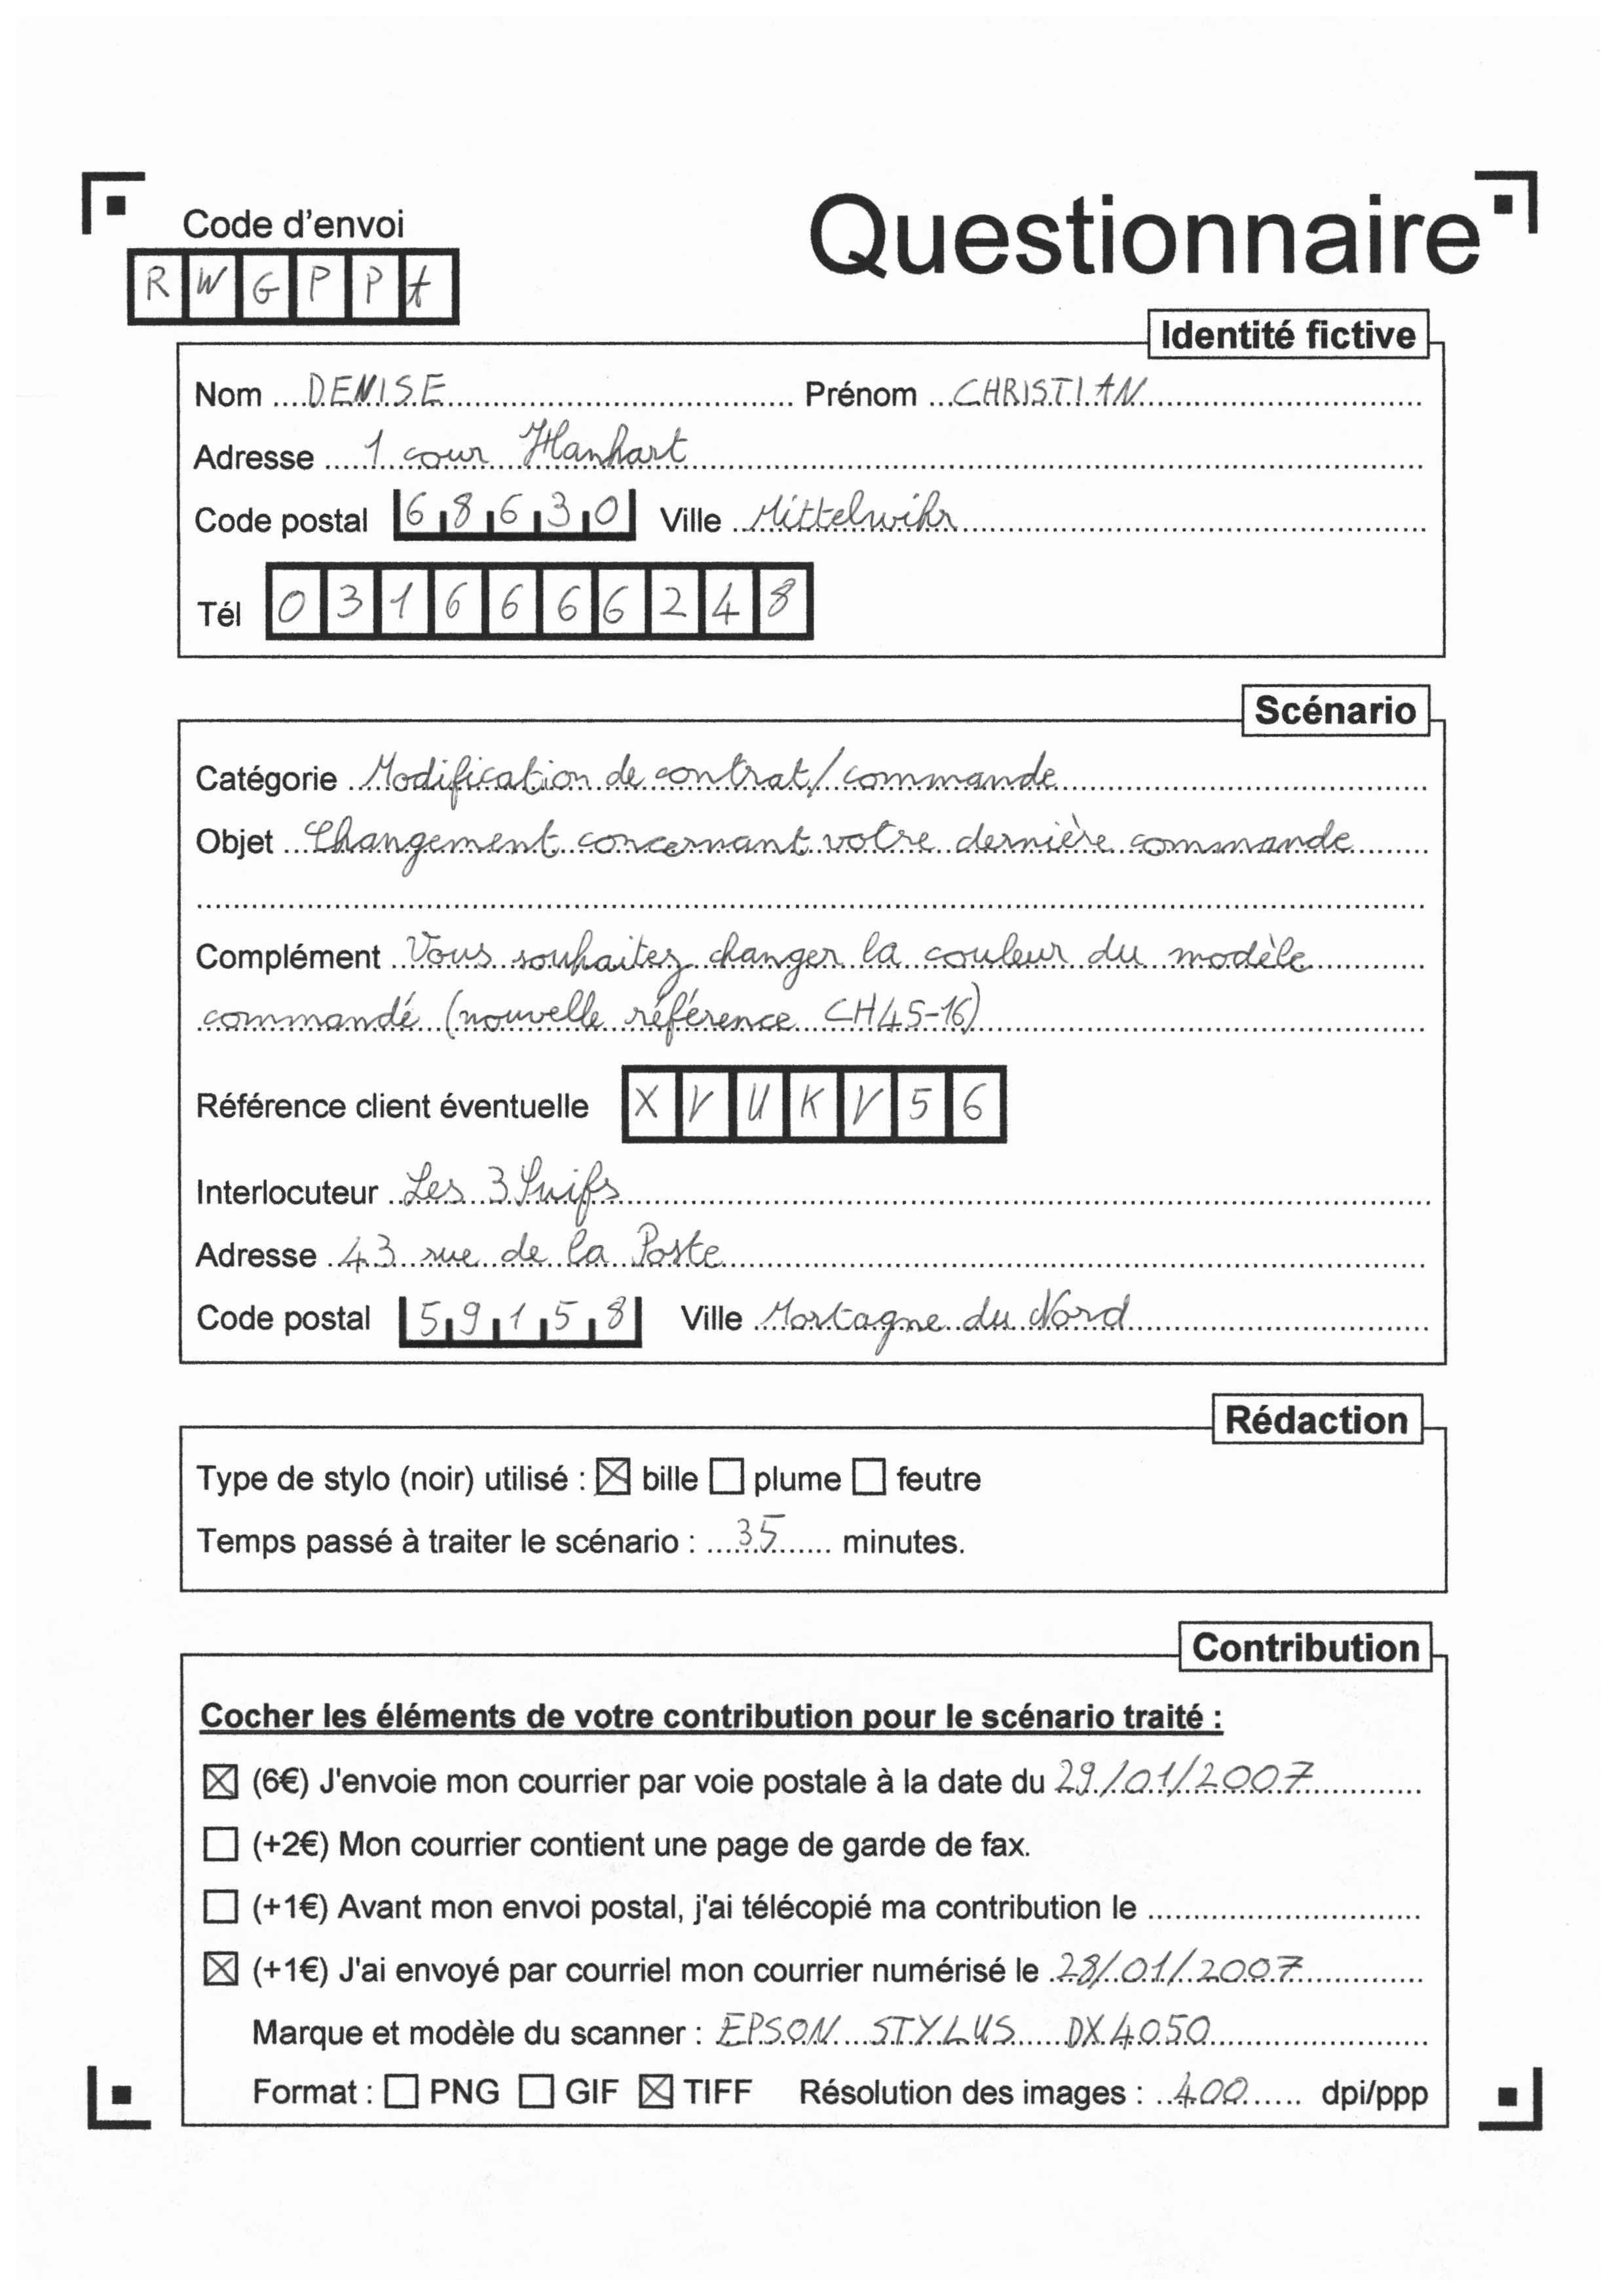 Questionnaire
Code d'envoi
R W G P P A
Identité fictive
Nom DENISE Prénom CHRISTIAN
Adresse 1 cour Hanhart
Code postal 68630 Ville Mittelwihr
Tél 0316666248
Scénario
Catégorie Modification de contrat/commande
Objet Changement concernant votre dernière commande
Complément Vous souhaitez changer la couleur du modèle
commandé (nouvelle référence CH45-16)
Référence client éventuelle X V U K V 5 6
Interlocuteur Les 3 Suifs
Adresse 43 rue de la Poste
Code postal 59158 Ville Mortagne du Nord
Rédaction
Type de stylo (noir) utilisé : ☒ bille ☐ plume ☐ feutre
Temps passé à traiter le scénario : 35 minutes.
Contribution
Cocher les éléments de votre contribution pour le scénario traité :
☒ (6€) J'envoie mon courrier par voie postale à la date du 29/01/2007
☐ (+2€) Mon courrier contient une page de garde de fax.
☐ (+1€) Avant mon envoi postal, j'ai télécopié ma contribution le
☒ (+1€) J'ai envoyé par courriel mon courrier numérisé le 28/01/2007
Marque et modèle du scanner : EPSON STYLUS DX4050
Format : ☐ PNG ☐ GIF ☒ TIFF Résolution des images : 400 dpi/ppp